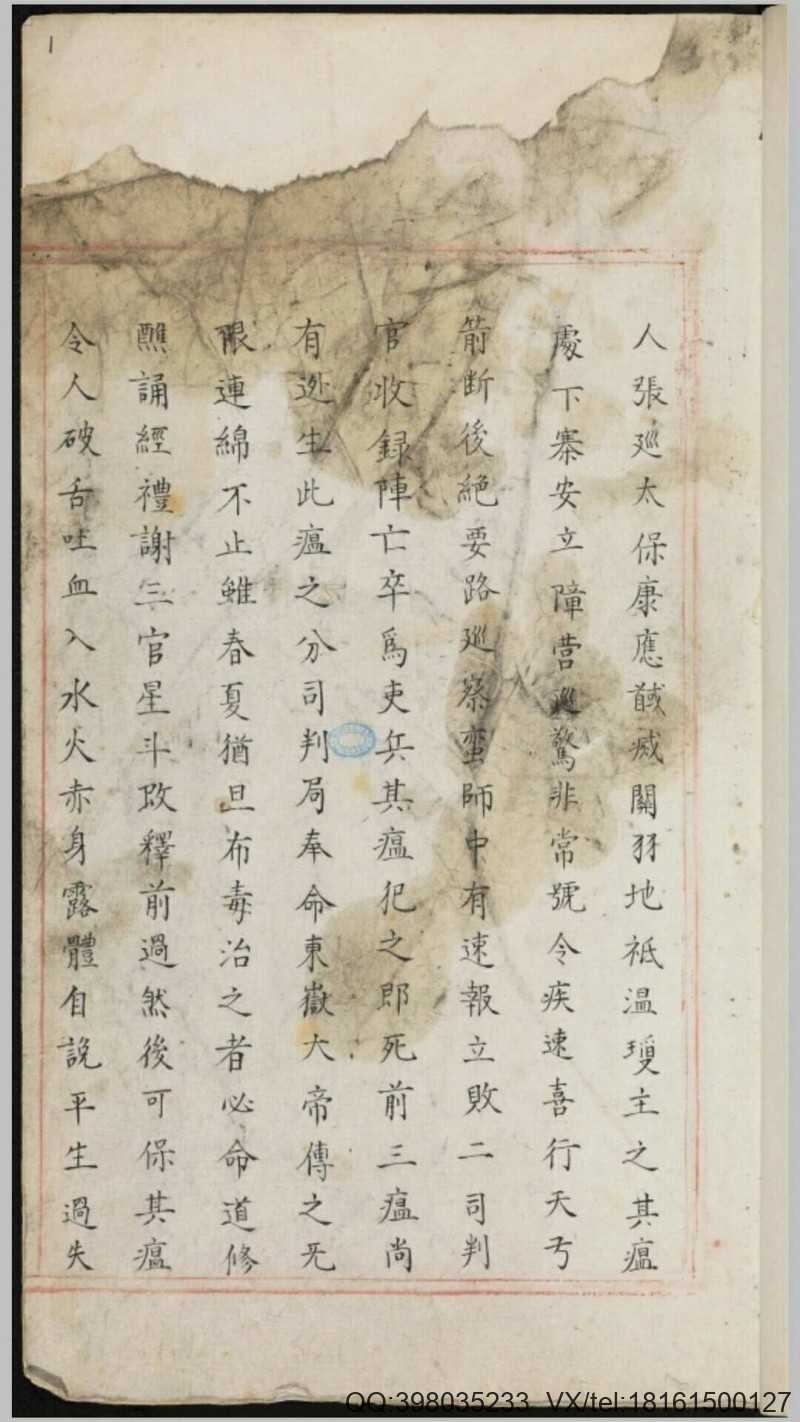 1
人張廵太保康應馘滅關羽地祇温瓊主之其瘟
處下寨安立障营廵驚非常號令疾速喜行天丂
箭断後絶要路廵察蛮師中有速報立敗二司判
官收録陣亡卒爲吏兵其瘟犯之即死前三瘟尚
有逃生此瘟之分司判局奉命東嶽大帝傳之无
限連綿不止雖春夏猶旦布毒治之者必命道修
醮誦經禮謝三官星斗改釋前過然後可保其瘟
令人破舌吐血入水火赤身露體自説平生過失
QQ:398035233 VX/tel:18161500127